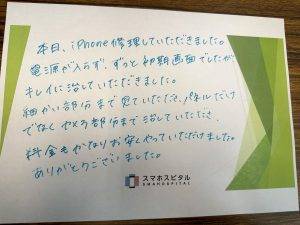 本日、iPhone修理していただきました。
電源が入らず、ずっと初期画面でしたが
キレイに治していただきました。
細かい部分まで見ていただき、パネルだけ
でなく 部分まで治していただき、
料金もかなりお安くやっていただけました。
ありがとうございました。
スマホスピタル
SMAHOSPITAL